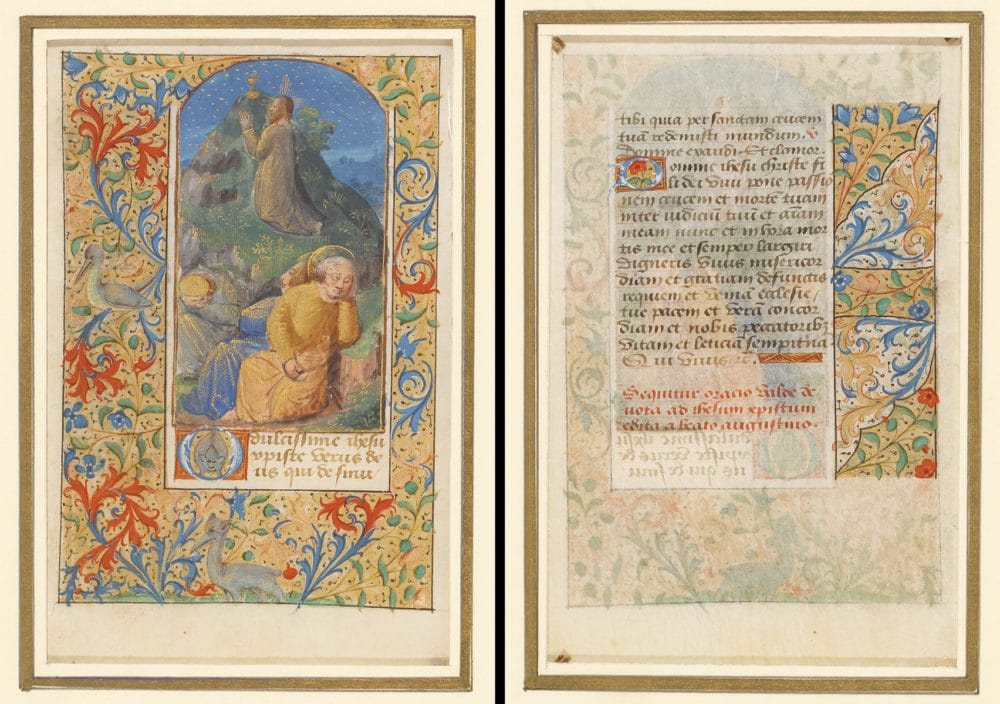 dulcissime ihesu
xpiste verus de
us qui de sinu
tibi quia per sanctam crucem
tuã redemisti mundum. V
Domine exaudi. Et clamor.
Domine ihesu christe fi
li dei vivi pone passio
nem crucem et mortẽ tuam
inter iudiciũ tuũ et aĩam
meam nunc et in hora mor
tis mee et semper largiri
digneris vivis misericor
diam et gratiam defunctis
requiem et veniã eclesie
tue pacem et verã concor
diam et nobis peccatorib3
vitam et leticiã sempitnã
Qui vivis
Sequitur oracio valde de
vota ad ihesum xpistum
edita a beato augustino.